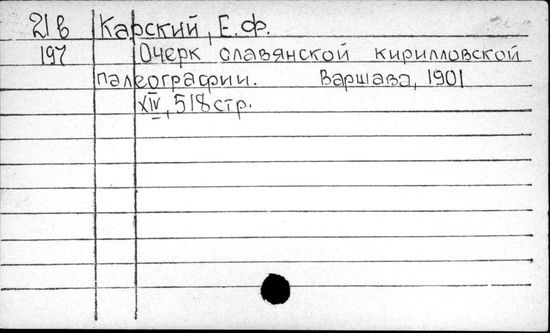 21 в Карский, Е.Ф.
197 Очерк славянской кирилловской
палеографии. Варшава, 1901
XIV, 518 стр.